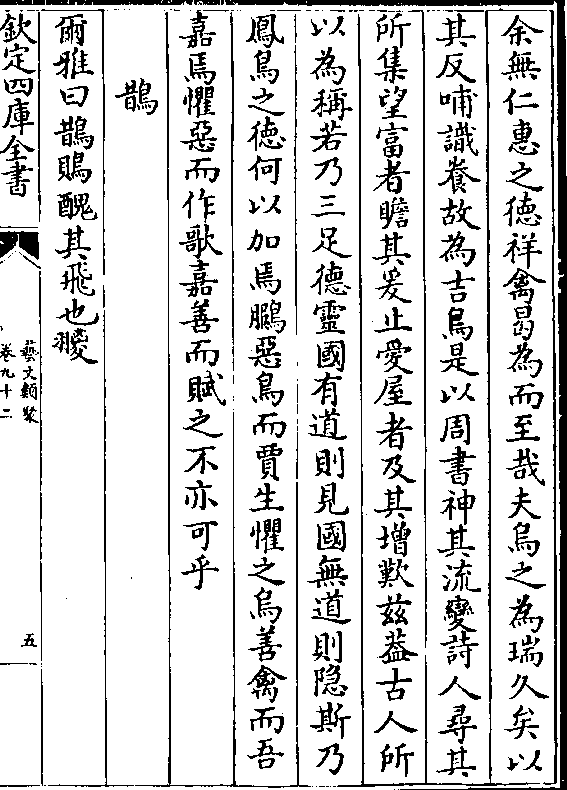 余無仁惠之徳祥禽曷為而至哉夫烏之為瑞久矣以
其反哺識養故為吉烏是以周書神其流變詩人尋其
所集望富者瞻其爰止愛屋者及其増歎兹葢古人所
以為稱若乃三足徳靈國有道則見國無道則隠斯乃
鳳鳥之徳何以加焉鵩惡鳥而賈生懼之烏善禽而吾
嘉焉懼惡而作歌嘉善而賦之不亦可乎
鵲
爾雅曰鵲鵙醜其飛也翪
欽定四庫全書
藝文類聚
卷九十二
五